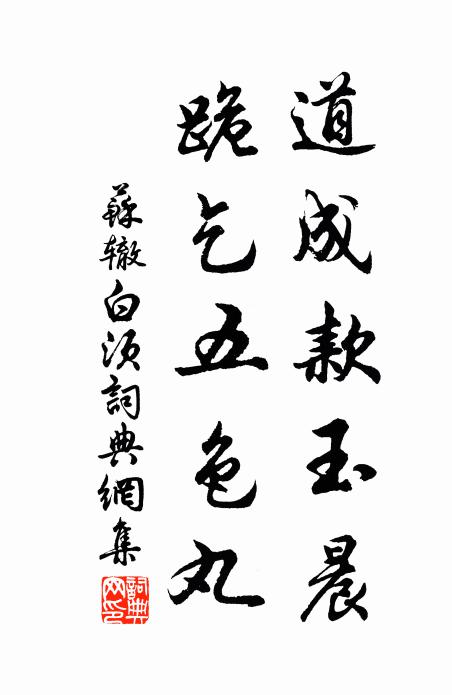 道成款玉晨
跪乞五色丸
蘇轍白須詞典網集
詞典網印